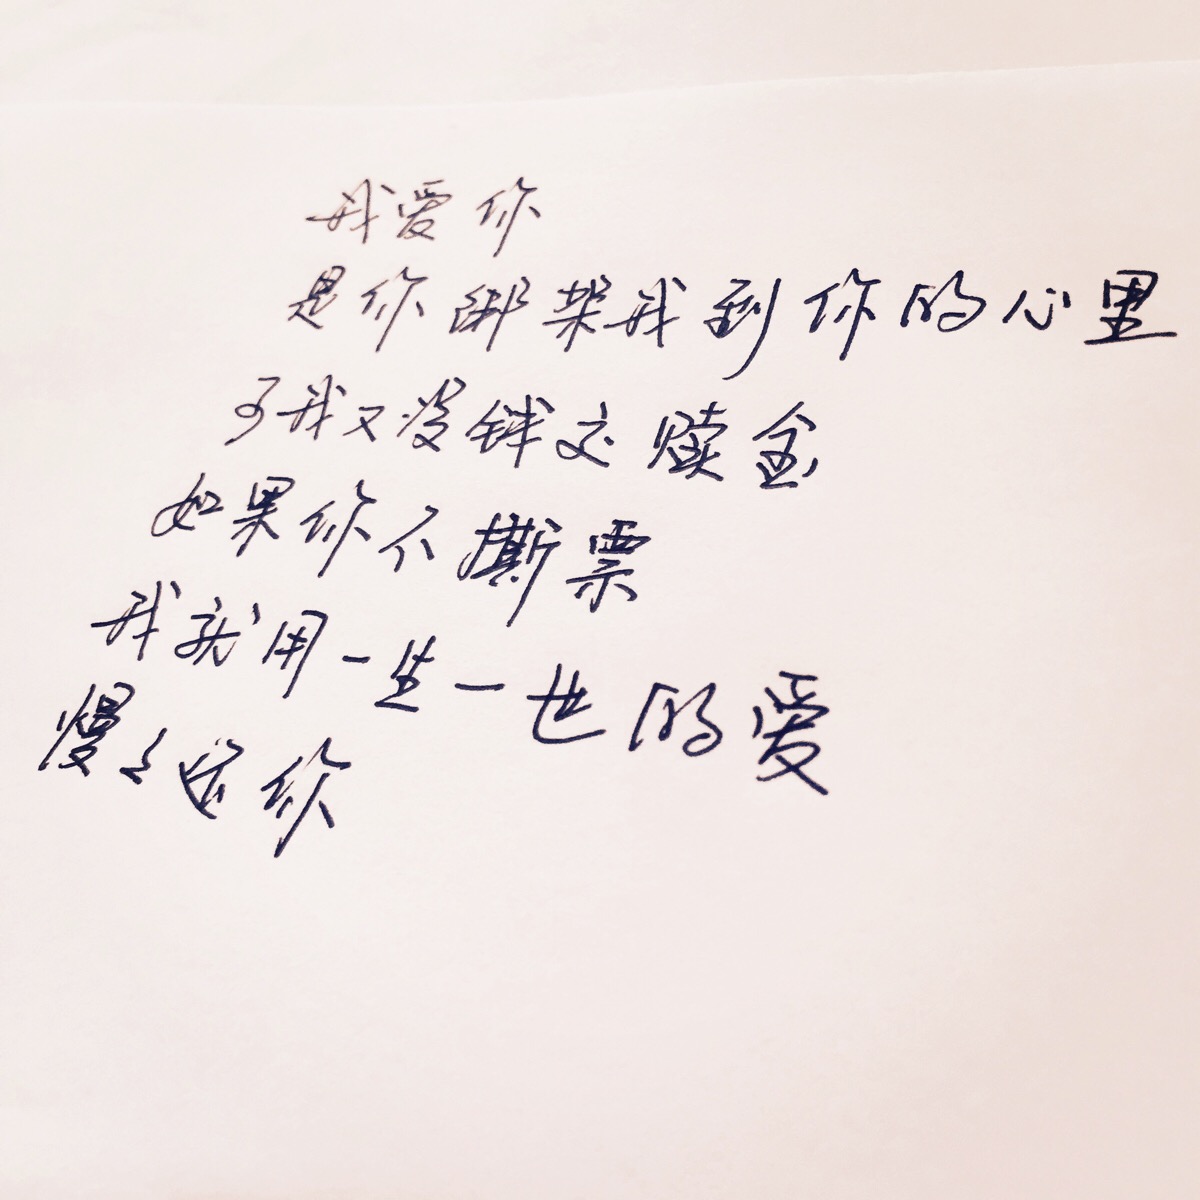 我爱你
是你绑架我到你的心里
可我又没钱交赎金
如果你不撕票
我就用一生一世的爱
慢々还你